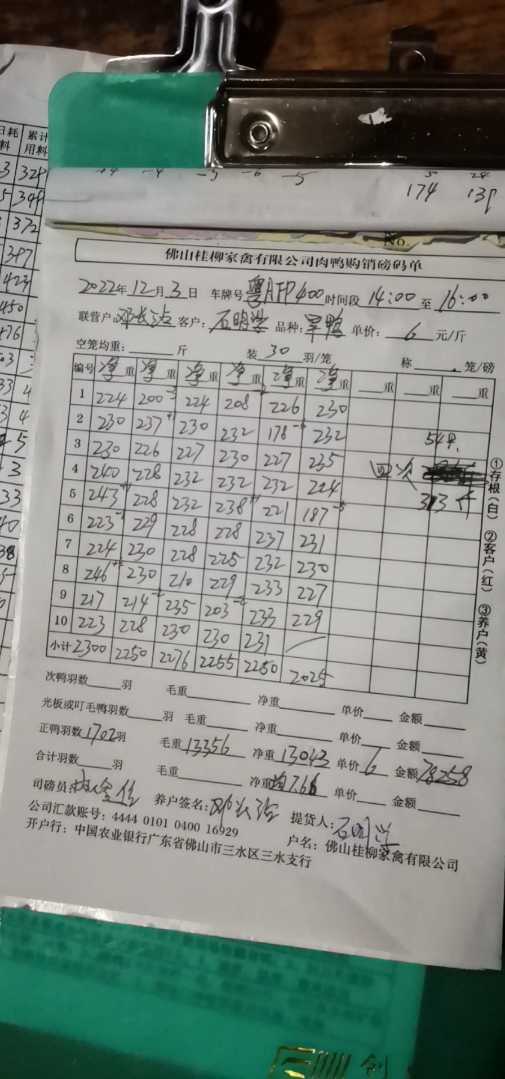 日耗 累计
料 用料
174 138
No.
佛山桂柳家禽有限公司肉鸭购销磅码单
2022年12月3日 车牌号 时间段 14:00 至 16:00
联营户: 客户: 石明 品种: 单价: 6 元/斤
空笼均重: 斤 装 30 羽/笼 称 笼/磅
编号 净重 净重 净重 净重 净重 净重 重 重 重
1 224 200 224 208 226 230
2 230 237 230 232 178 232
3 230 226 227 230 227 235 548
4 240 228 232 232 232 224 四次
5 243 228 232 238 221 187 313斤
6 223 229 228 228 237 231
7 224 230 228 225 232 230
8 246 230 210 229 233 227
9 217 214 235 203 233 229
10 223 228 230 230 231
小计 2300 2250 2276 2255 2250 2025
次鸭羽数 羽 毛重 净重 单价 金额
光板或叮毛鸭羽数 羽 毛重 净重 单价 金额
正鸭羽数 1702 羽 毛重 13356 净重 13043 单价 6 金额 78258
合计羽数 羽 毛重 净重 均7.66 单价 金额
司磅员: 养户签名: 提货人: 石明
公司汇款账号: 4444 0101 0400 16929 户名: 佛山桂柳家禽有限公司
开户行: 中国农业银行广东省佛山市三水区三水支行
①存根(白) ②客户(红) ③养户(黄)